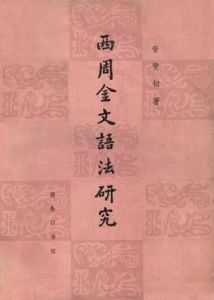 管燮初著
西周金文語法研究
商务印书馆